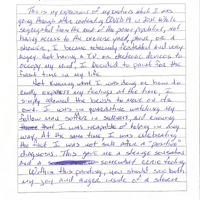 This is my expression of situations which I was
going through after contracting COVID-19 in 2021. While
segregated from the rest of the prison population, not
having access to the exercise yard, phone, or a
shower, I became extremely frustrated and very
angry. Not having a TV or electronic devices to
occupy my mind I decided to paint for the
first time in my life.
Not knowing what I was doing or how to
really express my feelings at the time, I
simply allowed the brush to move on its
own. I was in quarantine watching my
fellow man suffer in sickness, and knowing
that I was incapable of helping in any
way. At the same time, I was celebrating
the fact I was not sick after a "positive"
diagnosis. This gave me a strange sensation
and a somewhat eerie feeling.
Within this painting, you should see both
my joy and anger inside of a storm